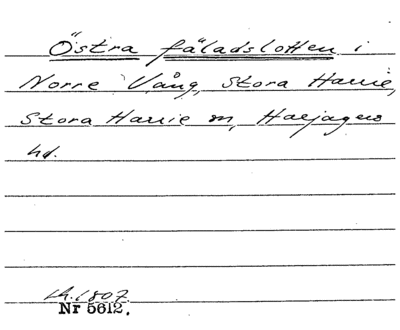 Östra fäladslotten i
Norre Vång, Stora Harrie,
Stora Harrie sn, Harjagers
hd.
LA. 1807.
Nr 5612.